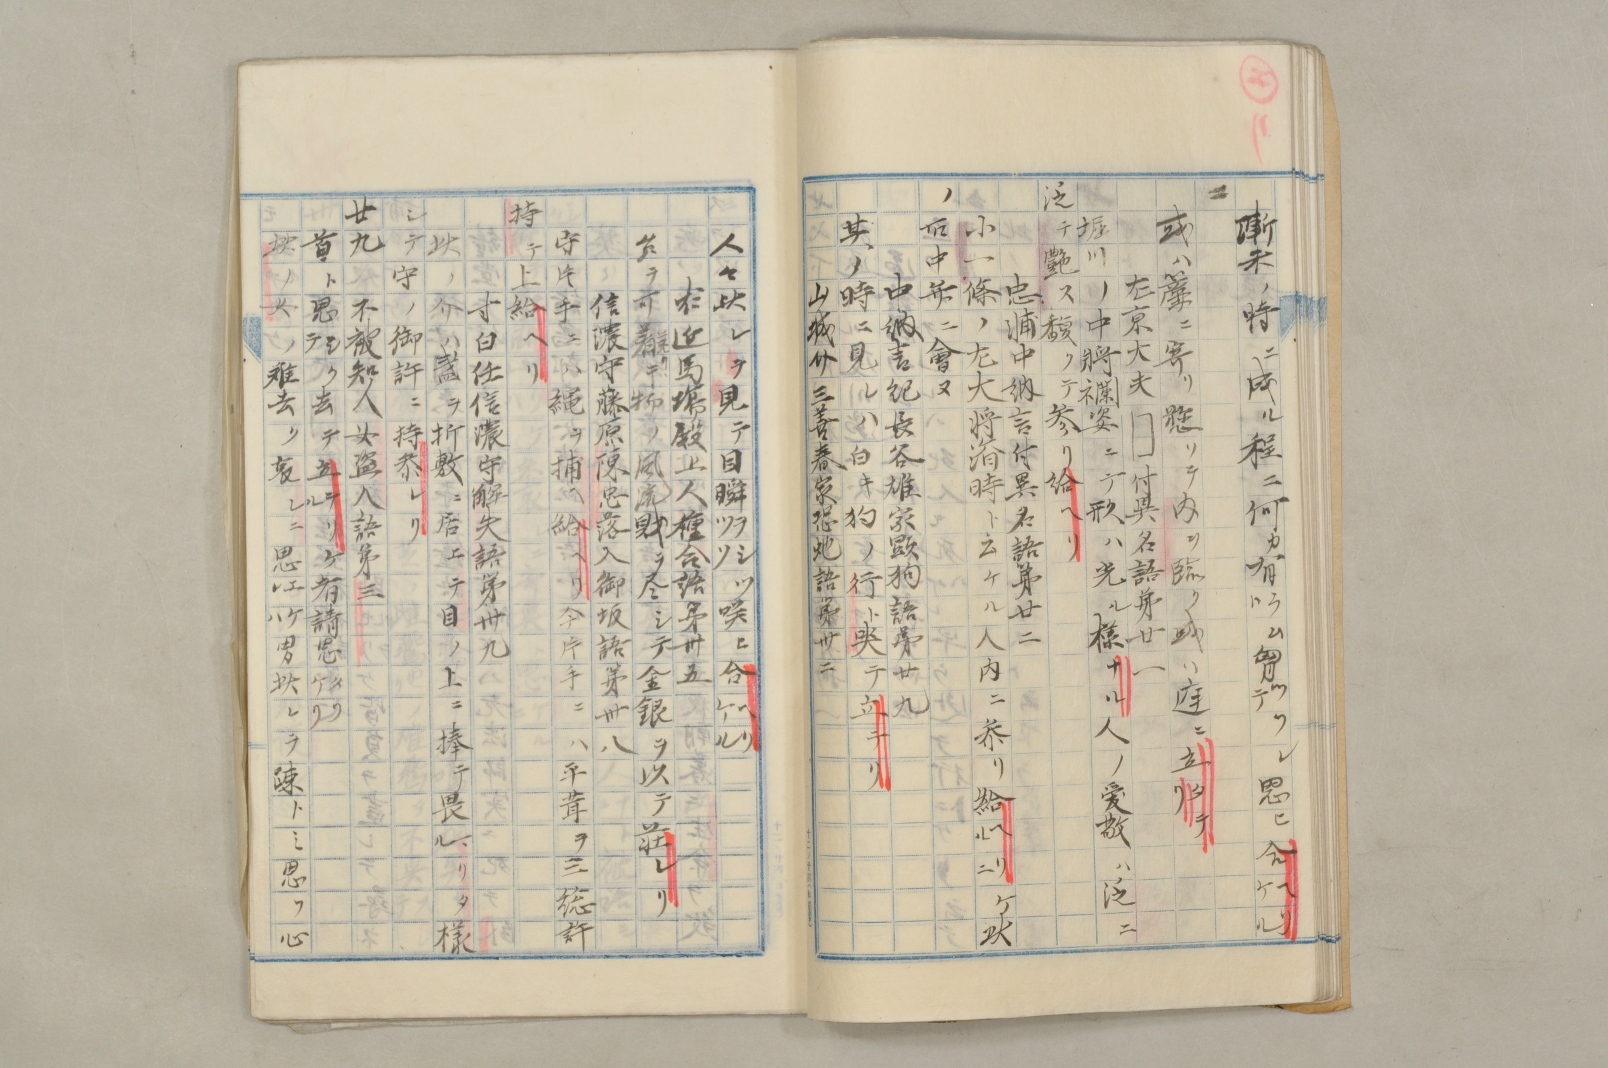 漸ク未ノ時ニ成ル程ニ何カ有ラム胸ツブレ思ヒ合ヘリケル
或ハ簾ニ寄リ懸リテ内ヲ臨ク或ハ庭ニ立タテリ
左京大夫□付異名語第廿一
堀川ノ中将襴姿ニテ形ハ光ル様ナル人ノ愛敬ハ泛ニ
泛テ艶ス馥クテ参リ給ヘリ
忠浦中納言付異名語第廿二
小一條ノ左大将済時ト云ケル人内ニ参リ給ヘリケルニ此
ノ右中弁ニ會ヌ
中納言紀長谷雄家顕狗語第廿九
其ノ時ニ見ルハ白キ狗ノ行ト哭テ立テリ
山城介三善春家恐蛇語第卅二
人々此レヲ見テ目瞬ヲシツツ咲ヒ合ヘリケル
右近馬場殿上人種合語第卅五
風流財ヲ尽シテ金銀ヲ以テ荘レリ
信濃守藤原陳忠落入御坂語第卅八
守片手ニハ縄ヲ捕ヘ給ヘリ今片手ニハ平茸ヲ三総許
持テ上給ヘリ
寸白任信濃守解失語第卅九
此ノ介ハ盞ヲ折敷ニ居エテ目ノ上ニ捧テ畏ルリタ様
シテ守ノ御許ニ持参レリ
廿九 不被知人女盗人語第三
首ト思テシク去テ立テリケル者請思ケリ
難去ク哀レニ思エケレハ男此レヲ疎トミ思フ心